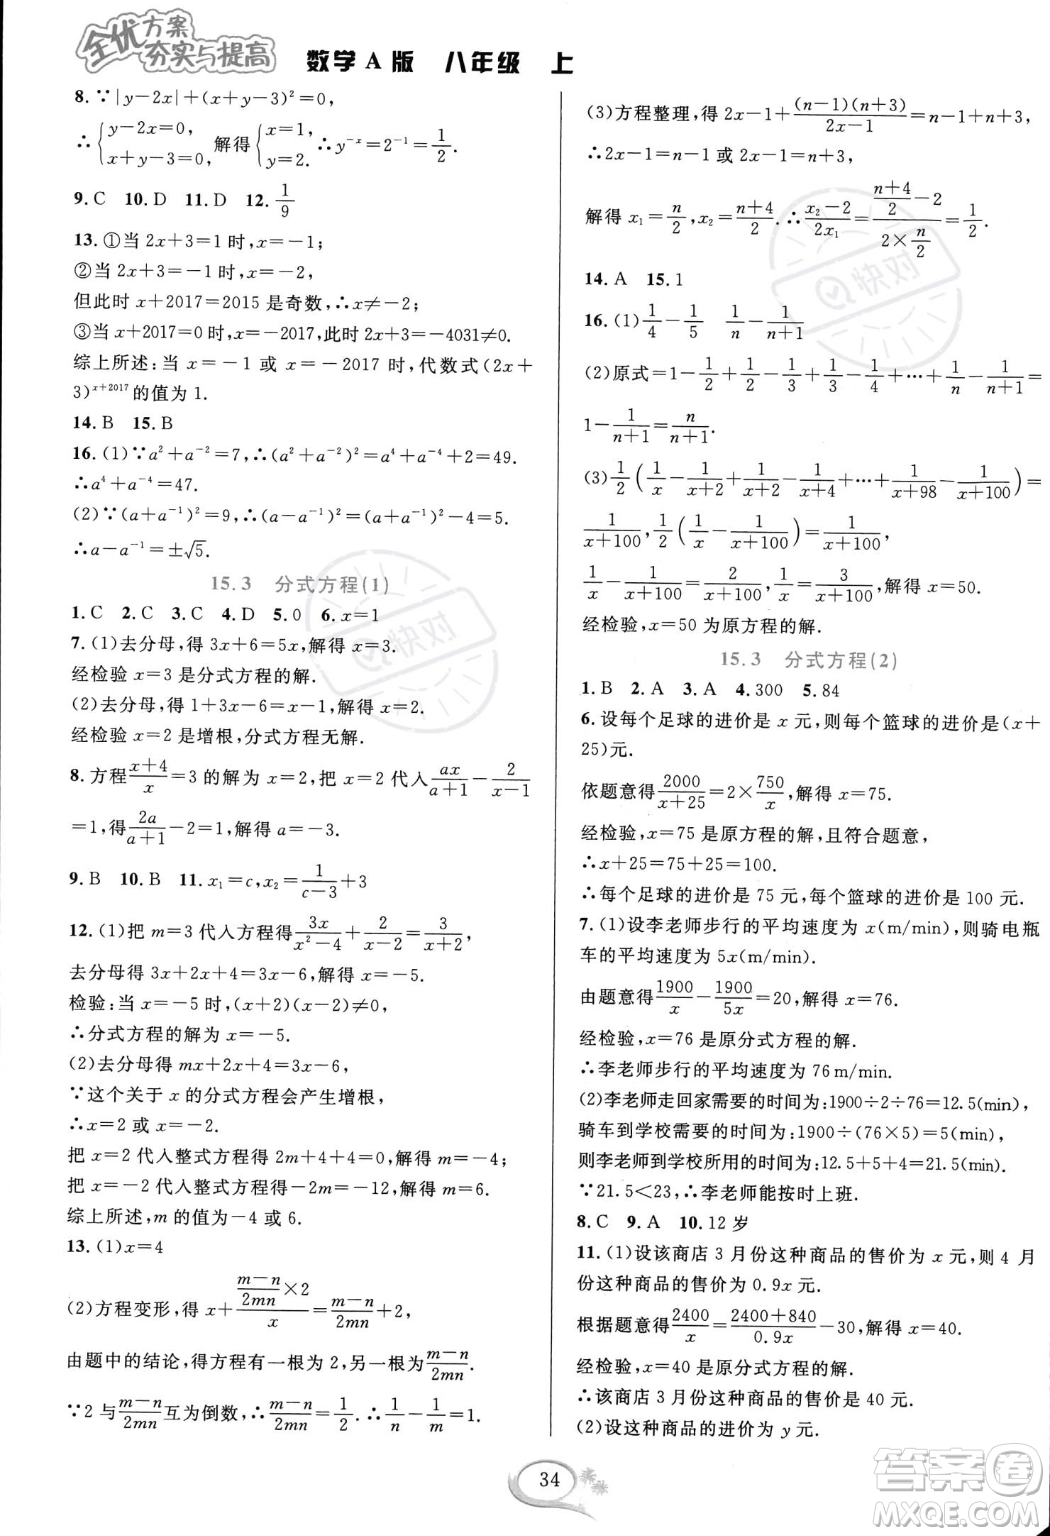 全优方案
夯实与提高
数学A版 八年级 上
8.∵|y-2x|+(x+y-3)²=0,
∴{y-2x=0, x+y-3=0, 解得{x=1, y=2. ∴y⁻ˣ=2⁻¹=1/2.
9.C 10.D 11.D 12.1/9
13.①当2x+3=1时,x=-1;
②当2x+3=-1时,x=-2,
但此时x+2017=2015是奇数,∴x≠-2;
③当x+2017=0时,x=-2017,此时2x+3=-4031≠0.
综上所述:当x=-1或x=-2017时,代数式(2x+
3)ˣ⁺²⁰¹⁷的值为1.
14.B 15.B
16.(1)∵a²+a⁻²=7,∴(a²+a⁻²)²=a⁴+a⁻⁴+2=49.
∴a⁴+a⁻⁴=47.
(2)∵(a+a⁻¹)²=9,∴(a-a⁻¹)²=(a+a⁻¹)²-4=5.
∴a-a⁻¹=±√5.
15.3 分式方程(1)
1.C 2.C 3.C 4.D 5.0 6.x=1
7.(1)去分母,得3x+6=5x,解得x=3.
经检验x=3是分式方程的解.
(2)去分母,得9-3x-6=x-5,解得x=2.
经检验x=2是增根,分式方程无解.
8.方程(x+4)/x=3的解为x=2,把x=2代入ax/(a+1)-2/(x-1)
=1,得2a/(a+1)-2=1,解得a=-3.
9.B 10.B 11.x₁=c,x₂=1/(c-3)+3
12.(1)把m=3代入方程得3x/(x²-4)+2/(x-2)=3/(x+2),
去分母得3x+2x+4=3x-6,解得x=-5.
检验:当x=-5时,(x+2)(x-2)≠0,
∴分式方程的解为x=-5.
(2)去分母得mx+2x+4=3x-6,
∵这个关于x的分式方程会产生增根,
∴x=2或x=-2.
把x=2代入整式方程得2m+4+4=0,解得m=-4;
把x=-2代入整式方程得-2m=-12,解得m=6.
综上所述,m的值为-4或6.
13.(1)x=4
(2)方程变形,得x+((m-n)/2mn×2)/x=(m-n)/2mn+2,
由题中的结论,得方程有一根为2,另一根为(m-n)/2mn.
∵2与(m-n)/2mn互为倒数,∴(m-n)/2mn=1/2.∴1/n-1/m=1.
(3)方程整理,得2x-1+(n-1)(n+3)/(2x-1)=n-1+n+3,
∴2x-1=n-1或2x-1=n+3,
解得x₁=n/2,x₂=(n+4)/2.∴(x₂-2)/2x₁=((n+4)/2-2)/(2×n/2)=1/2.
14.A 15.1
16.(1)1/4-1/5 1/n-1/(n+1)
(2)原式=1-1/2+1/2-1/3+1/3-1/4+…+1/n-1/(n+1)=
1-1/(n+1)=n/(n+1).
(3)1/2(1/x-1/(x+2)+1/(x+2)-1/(x+4)+…+1/(x+98)-1/(x+100))=
1/(x+100),1/2(1/x-1/(x+100))=1/(x+100),
1/x-1/(x+100)=2/(x+100),1/x=3/(x+100),解得x=50.
经检验,x=50为原方程的解.
15.3 分式方程(2)
1.B 2.A 3.A 4.300 5.84
6.设每个足球的进价是x元,则每个篮球的进价是(x+
25)元.
依题意得2000/(x+25)=2×750/x,解得x=75.
经检验,x=75是原方程的解,且符合题意,
∴x+25=75+25=100.
∴每个足球的进价是75元,每个篮球的进价是100元.
7.(1)设李老师步行的平均速度为x(m/min),则骑电瓶
车的平均速度为5x(m/min).
由题意得1900/x-1900/5x=20,解得x=76.
经检验,x=76是原分式方程的解.
∴李老师步行的平均速度为76 m/min.
(2)李老师走回家需要的时间为:1900÷2÷76=12.5(min),
骑车到学校需要的时间为:1900÷(76×5)=5(min),
则李老师到学校所用的时间为:12.5+5+4=21.5(min).
∵21.5<23,∴李老师能按时上班.
8.C 9.A 10.12岁
11.(1)设该商店3月份这种商品的售价为x元,则4月
份这种商品的售价为0.9x元.
根据题意得2400/x=(2400+840)/0.9x-30,解得x=40.
经检验,x=40是原分式方程的解.
∴该商店3月份这种商品的售价是40元.
(2)设这种商品的进价为y元.
34
快对
快对
答案圈
MXQE.COM